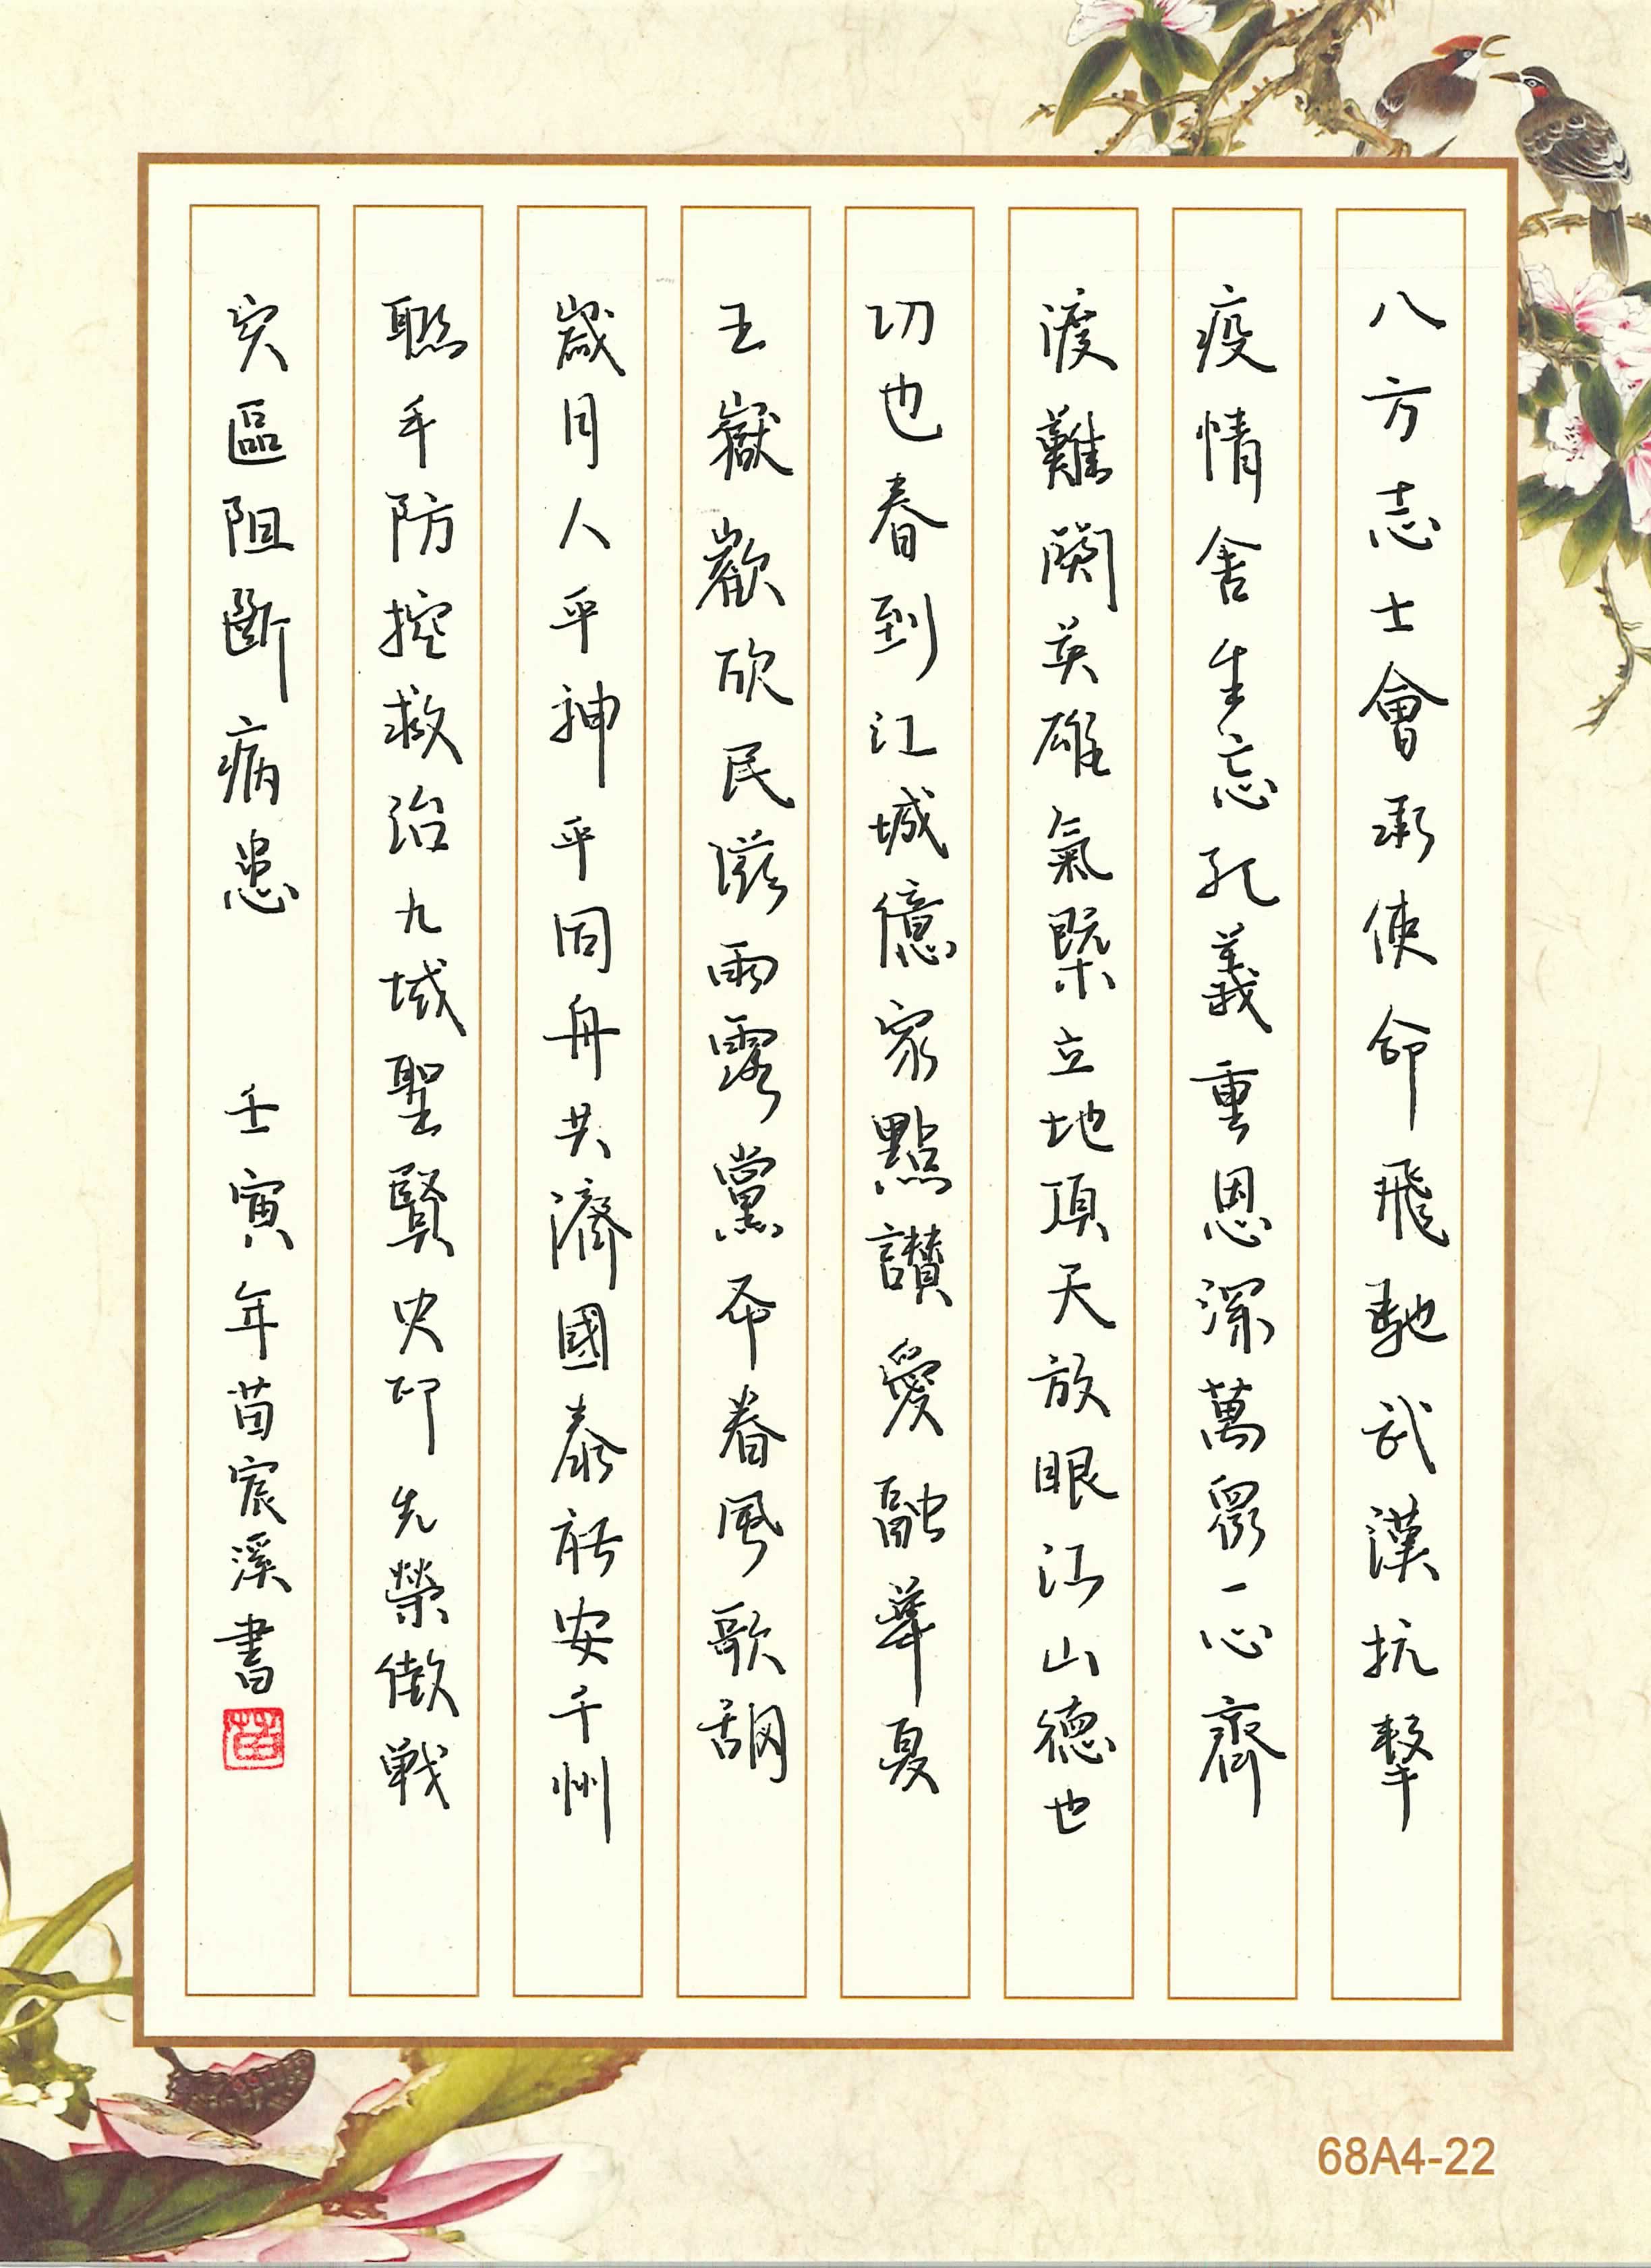 八方志士會承使命飛馳武漢抗擊
疫情舍生忘死義重恩深萬眾一心齊
渡難關英雄氣槩立地頂天放眼江山德也
功也春到江城億家點讚愛融華夏
五嶽歡欣民滋雨露黨布春風歌調
歲月人平神平同舟共濟國泰能安千州
聯手防控救治九域聖賢史印先榮儆戰
災區阻斷病患 壬寅年苗宸溪書
苗
68A4-22